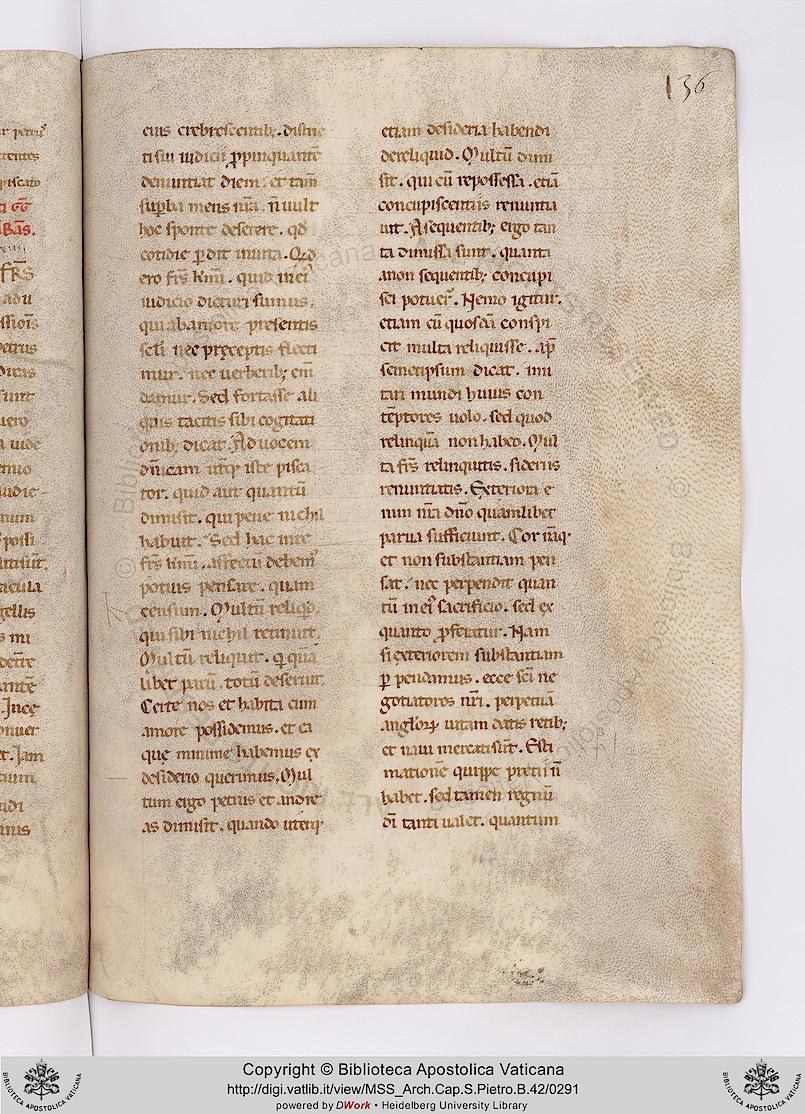 ur petrꝰ
rentes
piscato
ti GG
BAS.
FRS
adu
ssiois
etrus
dicas
sunt
uero
a uide
enuo
iudie-
num
possi
intisut.
acula
gellis
s mi
detre
ante
Ince
onuer
et. Iam
tium
ndi
inis
136
eius crebrescentib;. distric
ti sui iudicii ꝓpinquantē
denuntiat diem. et tam̄
supba mens nr̄a. n̄ uult
hoc sponte deserere. qd̄
cotidie ꝑdit inuita. Qd̄
ero frs̄ kmī. quid in eiꝰ
iudicio dicturi sumus.
qui ab amore presentis
scłi nec pręceptis flecti
mur. nec uerberib; em̄
damur. Sed fortasse ali
quis tacitis sibi cogitati
onib; dicat. Ad uocem
dn̄icam uterq; iste pisca
tor. quid aut quantū
dimisit. qui pene nichil
habuit. Sed hac in re
frs̄ kmī. affectū debemꝰ
potius pensare. quam
censum. Multū reliqd̄.
qui sibi nichil retinuit.
Multū reliquit. q̄ quā
libet parū. totū deseruit.
Certe nos et habita cum
amore possidemus. et ea
quę minime habemus ex
desiderio querimus. Mul
tum ergo petrus et andre
as dimisit. quando uterq;
etiam desideria habendi
dereliquid. Multū dimi
sit. qui cū re possessa. etiā
concupiscentiis renuntia
uit. A sequentib; ergo tan
ta dimissa sunt. quanta
a non sequentib; concupi
sci potuer̄. Nemo igitur.
etiam cū quosdā conspi
cit multa reliquisse. ap̄
semetipsum dicat. imi
tari mundi huius con
tēptores uolo. sed quod
relinquā non habeo. Mul
ta frs̄ relinquitis. si deriis
renuntiatis. Exteriora e
nim nr̄a dn̄o quamlibet
parua sufficiunt. Cor nāq;
et non substantiam pen
sat. nec perpendit quan
tū in eiꝰ sacrificio. sed ex
quanto ꝓferatur. Nam
si exteriorem substantiam
ꝑpendamus. ecce scī ne
gotiatores nr̄i. perpetuā
angłoꝝ uitam datis retib;
et naui mercati sūt. Esti
mationē quippe pretii n̄
habet. sed tamen regnū
dī tanti ualet. quantum
Copyright © Biblioteca Apostolica Vaticana
http://digi.vatlib.it/view/MSS_Arch.Cap.S.Pietro.B.42/0291
powered by DWork • Heidelberg University Library
BIBLIOTECA APOSTOLICA VATICANA
BIBLIOTECA APOSTOLICA VATICANA